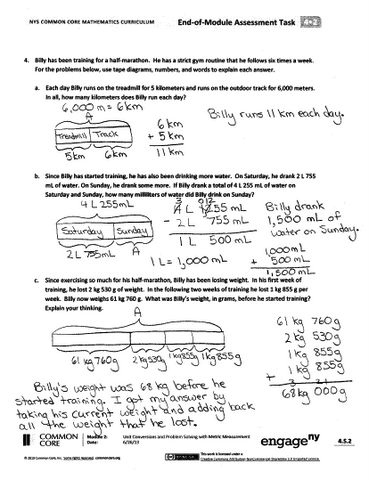 NYS COMMON CORE MATHEMATICS CURRICULUM
End-of-Module Assessment Task 4•2
4. Billy has been training for a half-marathon. He has a strict gym routine that he follows six times a week.
For the problems below, use tape diagrams, numbers, and words to explain each answer.
a. Each day Billy runs on the treadmill for 5 kilometers and runs on the outdoor track for 6,000 meters.
In all, how many kilometers does Billy run each day?
6,000 m = 6 km
A
Treadmill Track
5km 6km
6 km
+ 5 km
11 km
Billy runs 11 km each day.
b. Since Billy has started training, he has also been drinking more water. On Saturday, he drank 2 L 755
mL of water. On Sunday, he drank some more. If Billy drank a total of 4 L 255 mL of water on
Saturday and Sunday, how many milliliters of water did Billy drink on Sunday?
4 L 255mL
Saturday Sunday
2 L 755mL A
4 L 255 mL
- 2 L 755 mL
1 L 500 mL
1 L = 1,000 mL
1,000 mL
+ 500 mL
1,500 mL
Billy drank
1,500 mL of
water on Sunday.
c. Since exercising so much for his half-marathon, Billy has been losing weight. In his first week of
training, he lost 2 kg 530 g of weight. In the following two weeks of training he lost 1 kg 855 g per
week. Billy now weighs 61 kg 760 g. What was Billy's weight, in grams, before he started training?
Explain your thinking.
A
61 kg 760g 2kg 530g 1kg 855g 1kg 855g
61 kg 760g
2 kg 530g
1 kg 855g
+ 1 kg 855g
68 kg 000 g
Billy's weight was 68 kg before he
started training. I got my answer by
taking his current weight and adding back
all the weight that he lost.
COMMON CORE
Module 2:
Date:
Unit Conversions and Problem Solving with Metric Measurement
engage ny
4.S.2